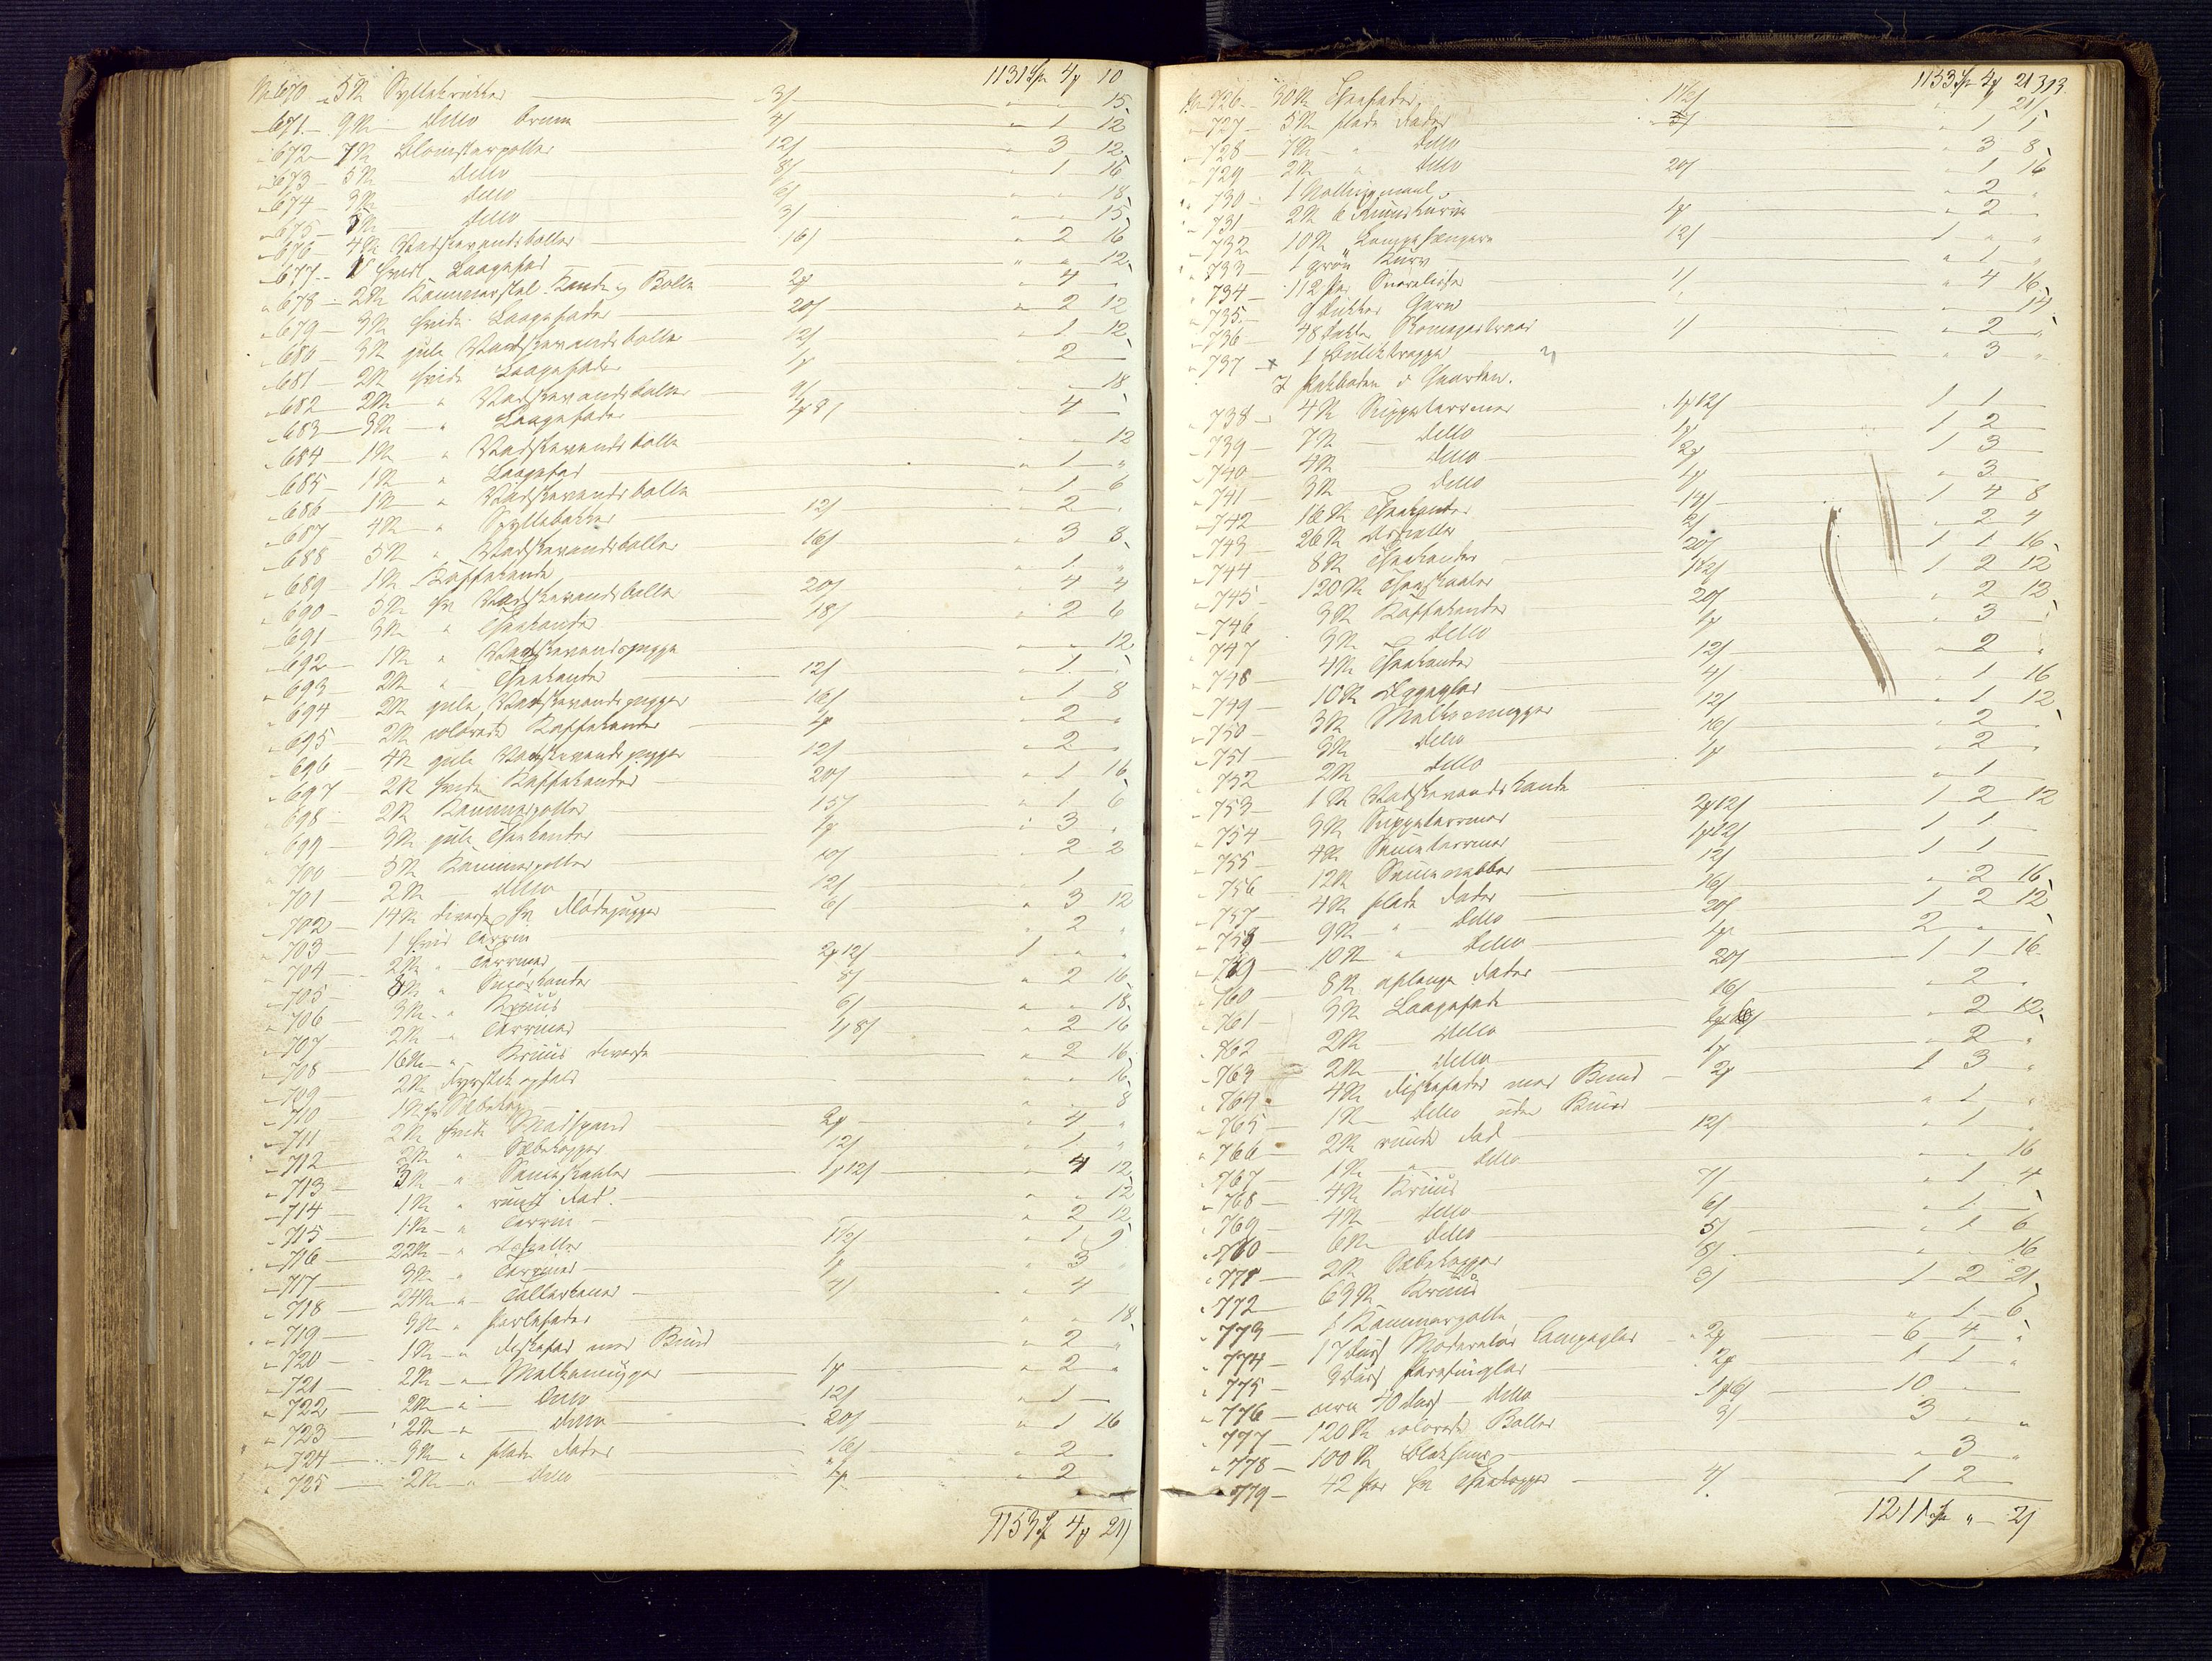 1131 Sp 4 10
No 670 5 St Syltekrukker 3/ " " 15
671 9 St Ditto brune 4/ " 1 12
672 7 St Blomsterpotter 12/ " 3 12
673 5 St Ditto 8/ " 1 16
674 3 St Ditto 6/ " " 18
675 5 St Ditto 3/ " " 15
676 4 St Vadskevandsboller 16/ " 2 16
677 1 hvidt Laagefad " " 12
678 2 St Kammerstel Kande og Bolle 2 " 4 "
679 3 St hvide Laagefader 20/ " 2 12
680 3 St gule Vadskevandsboller 12/ " 1 12
681 2 St hvide Laagefade 1 " 2
682 2 St " Vadskevandsboller 9/ " " 18
683 3 St " Laagefade " 4
684 1 St " Vadskevandsbolle " " 12
685 1 St " Laagefad " 1 "
686 1 St " Vadskevandsbolle " 1 6
687 4 St " Skyllebakker 12/ " 2 "
688 5 St " Vadskevandsboller 16/ " 3 8
689 1 St Kaffekande " 1 "
690 5 St hv Vadskevandsboller 20/ " 4 4
691 3 St " Theekander 18/ " 2 6
692 1 St " Vadskevandsmugge " " 12
693 2 St " Theekander 12/ " 1 "
694 2 St gule Vadskevandsmugger 16/ " 1 8
695 2 St colorede Kaffekander 1 " 2 "
696 4 St gule Vadskevandsmugger 12/ " 2
697 2 St hvide Kaffekander 20/ " 1 16
698 2 St Kammerpotter 15/ " 1 6
699 3 St gule Theekander 1 " 3 "
700 5 St Kammerpotter 10/ " 2 2
701 2 St Ditto 12/ " 1
702 14 St diverse hv Flødemugger 6/ " 3 12
703 1 hvid Terrin " 2 "
704 2 St " Terriner 2 12/ 1 " "
705 8 St " Smørkander 8/ " 2 16
706 3 St " Kruus 6/ " " 18
707 2 St " Terriner 1 8/ " 2 16
708 16 St " Kruus diverse " 2 16
709 2 St " " 16
710 1 St hv Sæbekop " " 8
711 2 St hvide Madspand 2 " 4 "
712 2 St " Sæbekopper 12/ " 1 "
713 3 St " Sauceskaaler 1 12/ " 4 12
714 1 St " rundt Fad " " 12
715 1 St " Terrin " 2 12
716 22 St " Assietter 1½/ " 1 9
717 3 St " Terriner 1 " 3
718 24 St " Tallerkener 4/ " 4
719 3 St " " " 18
720 1 St " Fiskefad med Bund " 2 "
721 2 St " Melkemugger 1 " 2 "
722 2 St " Ditto 12/ " 1
723 2 St " Ditto 20/ " 1 16
724 3 St " flade Fader 16/ " 2
725 2 St " Ditto 1 " 2
1153 Sp 4 21/
1153 Sp 4 21 313
No 726 30 St Theefader " " 21/
727 5 St flade Fader " 1 5
728 7 St " Ditto " 3 8
729 2 St " Ditto 20/ " 1 16
730 1 " 2 "
731 2 St 1 " 2 "
732 10 St Lampehængere 12/ 1 " "
733 1 grøn Kurv " 1 "
734 112 Par Snørelidser 1/ " 4 16
735 9 Dukker Garn " " 14
736 48 1/ " 2 "
737 x 1 Butiktrappe " 3 "
I Pakboden i Gaarden.
738 4 St Suppeterriner 1 12/ 1 1
739 7 St Ditto 1 1 2
740 4 St Ditto 2 1 3
741 3 St Ditto 1 " 3
742 16 St Theekander 14/ 1 4 8
743 26 St Assietter 2/ " 2 4
744 8 St Theekander 20/ 1 1 16
745 120 St Theeskaaler 1 2 12
746 3 St Kaffekander 20/ " 2 12
747 3 St Ditto 1 " 3 "
748 4 St Theekander 12/ " 2 "
749 10 St Æggeglas 4/ " 1 16
750 3 St Melkemugger 12/ " 1 12
751 3 St Ditto 16/ " 2 "
752 2 St Ditto 1 " 2 "
753 1 St Vadskevandskande " 1
754 3 St Suppeterriner 2 12/ 1 2 12
755 4 St Sauceterriner 1 12/ 1 1
756 12 St Saucenebber 12/ 1 1
757 4 St flade Fader 16/ " 2 16
758 9 St " Ditto 20/ 1 2 12
759 10 St " Ditto 1 2 "
760 8 St aflange Fader 20/ 1 1 16
761 3 St Laagefade 16/ " 2 "
762 2 St Ditto " 2 12
763 2 St Ditto 1 " 2 "
764 4 St Fiskefader med Bund 2 1 3 "
765 1 St Ditto uden Bund " 1 "
766 2 St runde Fad 12/ " 1 "
767 1 St " Ditto " " 16
768 4 St Kruus 7/ " 1 4
769 4 St Ditto 6/ " 1
770 6 St Ditto 5/ " 1 6
771 2 St Sæbekopper 8/ " " 16
772 63 St Kruus 3/ 1 2 21
773 1 Kammerpotte " 1 6
774 17 Dus Moderatør Lampeglas 2 6 4 "
775 3 Dus Parafinglas 2 1 1 "
776 circa 40 Dus Ditto 1 6/ 10
777 120 St colorede Boller 3/ 3 " "
778 100 St Blækhuus " 3 "
779 42 Par hv Theekopper 4/ 1 2
1211 Sp " 2/